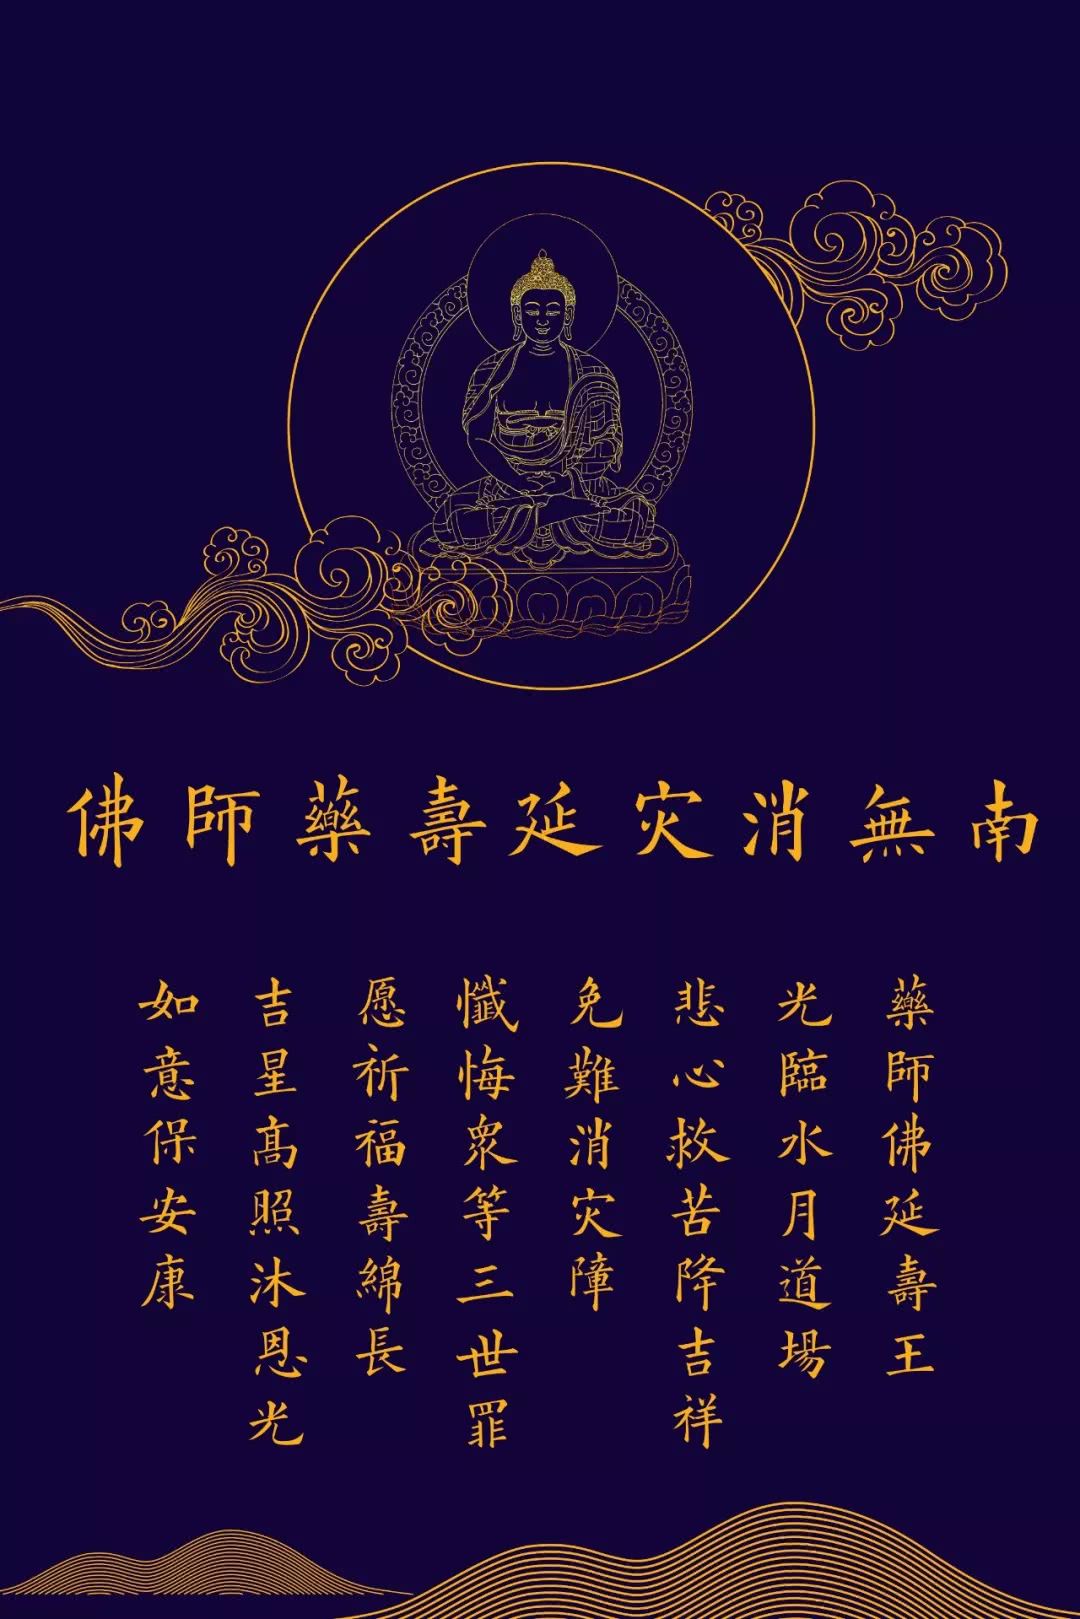 南無消灾延壽藥師佛
藥師佛延壽王
光臨水月道場
悲心救苦降吉祥
免難消灾障
懺悔眾等三世罪
愿祈福壽綿長
吉星髙照沐恩光
如意保安康